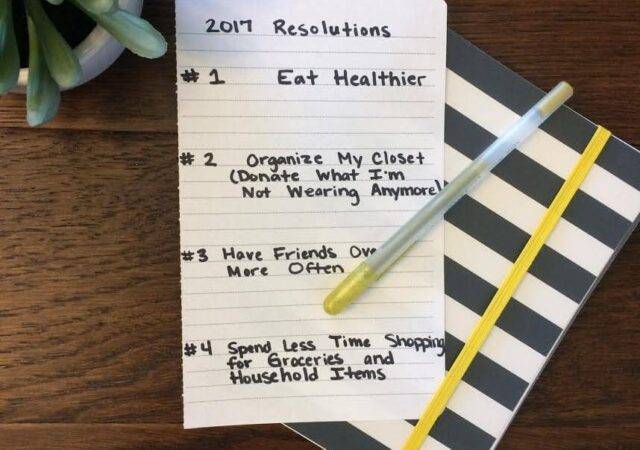 2017 Resolutions
#1 Eat Healthier
#2 Organize My Closet
(Donate What I'm
Not Wearing Anymore)
#3 Have Friends Ove
More Often
#4 Spend Less Time Shopping
for Groceries and
Household Items